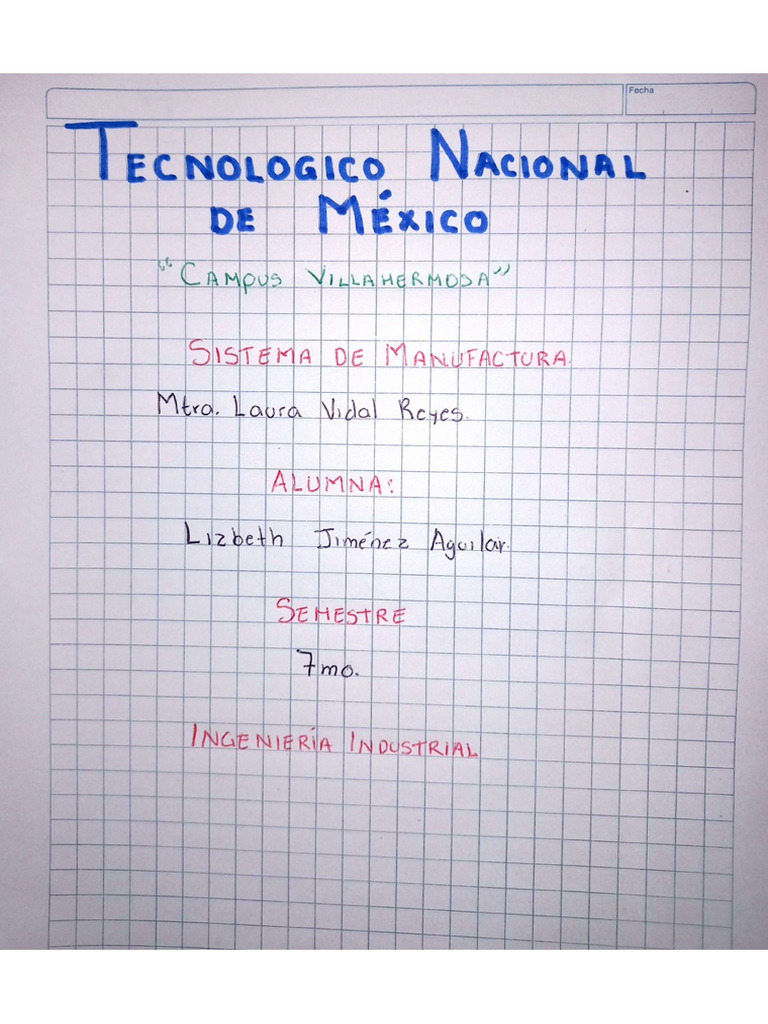 Fecha
TECNOLOGICO NACIONAL
DE MÉXICO
"CAMPUS VILLAHERMOSA"
SISTEMA DE MANUFACTURA.
Mtra. Laura Vidal Reyes.
ALUMNA:
Lizbeth Jiménez Aguilar.
SEMESTRE
7mo.
INGENIERÍA INDUSTRIAL